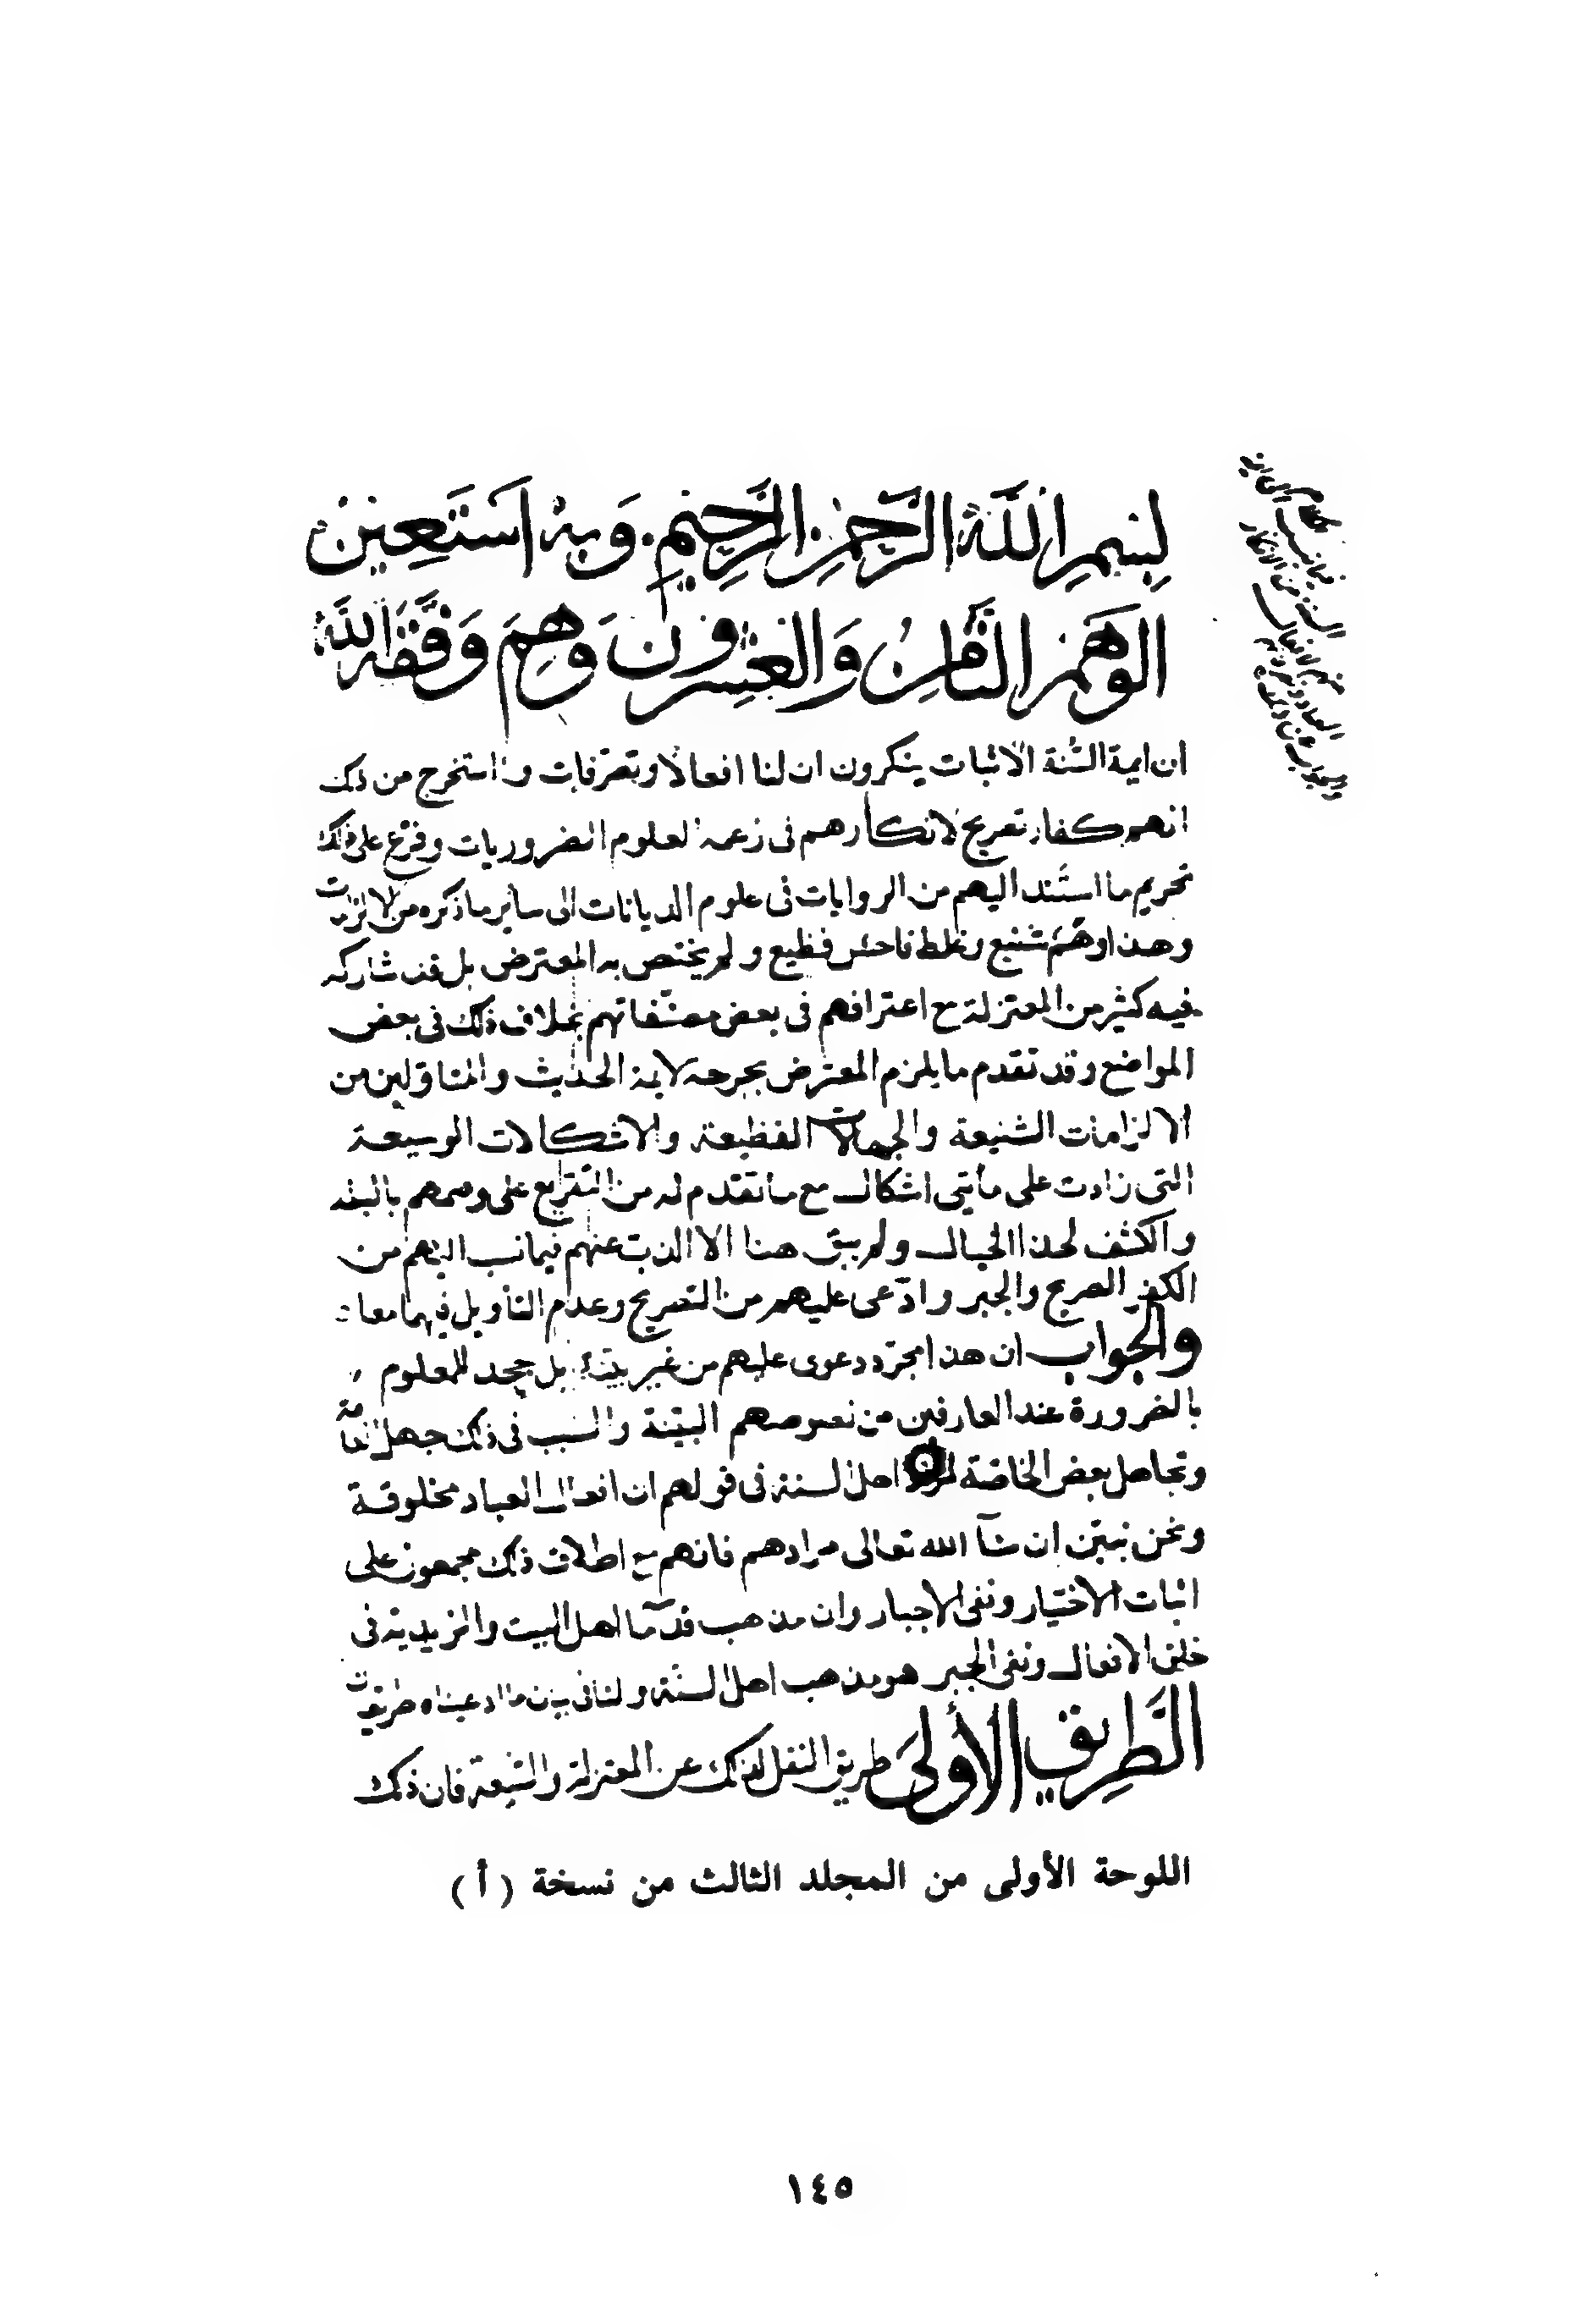 بِسْمِ اللَّهِ الرَّحْمٰنِ الرَّحِيمِ. وَبِهِ اَسْتَعِينُ
الوَهْمُ الثَّامِنُ وَالعِشْرُونَ وَهِمَ وَفَّقَهُ اللَّهُ
ان ايمة السُّنة الاثبات ينكرون ان لنا افعالا وتصرفات واستخرج من ذلك
انهم كفار تصريح لانكارهم فى زعمه العلوم الضروريات وفرّع على ذلك
تحريم ما استَند اليهم من الروايات فى علوم الديانات الى ساير ما ذكره من الالزامات
وهذا وهَمٌ شنيع وغلط فاحش فظيع ولم يختص به المعترض بل قد شاركه
فيه كثير من المعتزلة مع اعترافهم فى بعض مصنّفاتهم بخلاف ذلك فى بعض
المواضع وقد تقدم ما يلزم المعترض بجرحه لايمة الحديث والمتاوّلين من
الالزامات الشنيعة والجهالات الفظيعة والاشكالات الوسيعة
التى زادت على مأيتى اشكال مع ما تقدم له من التقريع على وصمهم بالبله
والكشف لهذا الخيال ولم يبق هنا الا الذب عنهم فيما نسب اليهم من
الكفر الصريح والجبر وادّعى عليهم من التصريح وعدم التأويل فيهما معا
والجواب ان هذا مجرّد دعوى عليهم من غير بيّنة بل جحد للمعلوم
بالضرورة عند العارفين من نصوصهم البيّنة والسبب فى ذلك جهل العامة
وتجاهل بعض الخاصّة لمراد اهل السنة فى قولهم ان افعال العباد مخلوقة
ونحن نبيّن ان شآ الله تعالى مرادهم فانهم مع اطلاق ذلك مجمعون على
اثبات الاختيار ونفى الاجبار وان مذهب قدمآ اهل البيت والزيدية فى
خلق الافعال ونفى الجبر هو مذهب اهل السنّة ولنا فى بيان ما ادعيناه طريقات
الطَّرِيقُ الأُولَى طريق النقل لذلك عن المعتزلة والشيعة فان ذلك
اللوحة الأولى من المجلد الثالث من نسخة (أ)
١٤٥